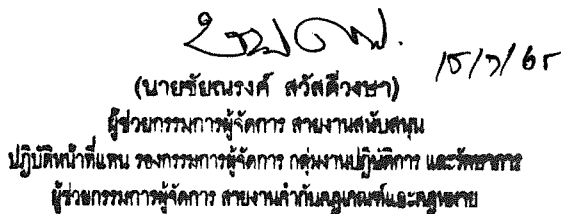 15/7/65
(นายชัยณรงค์ สวัสดีวงษา)
ผู้ช่วยกรรมการผู้จัดการ สายงานสนับสนุน
ปฏิบัติหน้าที่แทน รองกรรมการผู้จัดการ กลุ่มงานปฏิบัติการ และรักษาการ
ผู้ช่วยกรรมการผู้จัดการ สายงานกำกับกฎเกณฑ์และกฎหมาย